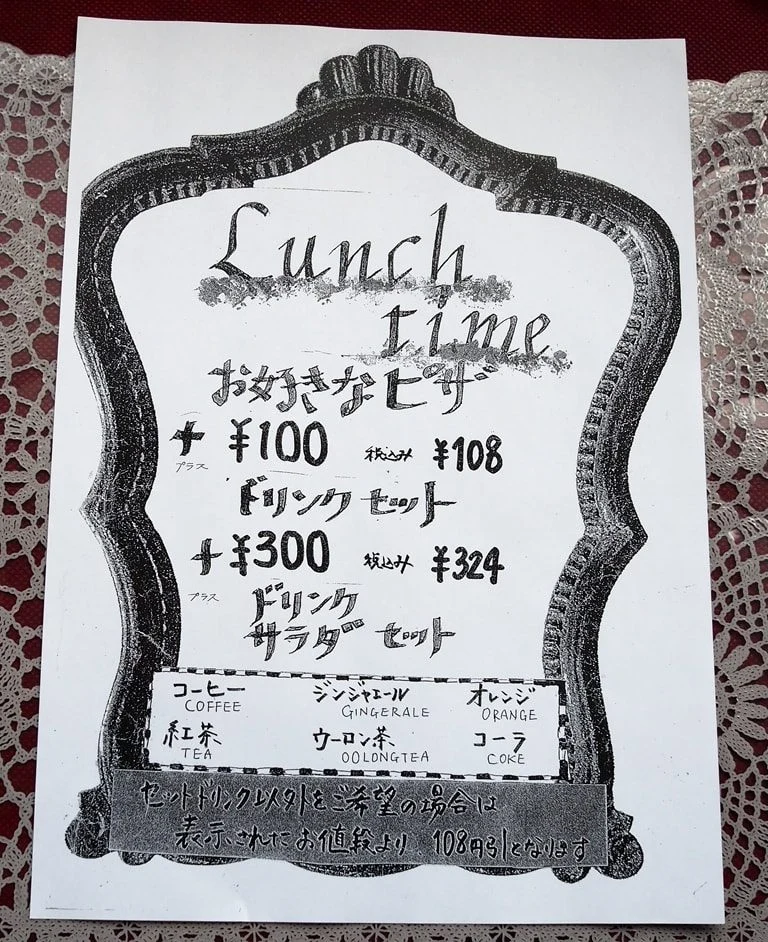 Lunch
time
お好きなピザ
+ ¥100 税込み ¥108
プラス
ドリンク セット
+ ¥300 税込み ¥324
プラス
ドリンク
サラダ セット
コーヒー ジンジャエール オレンジ
COFFEE GINGERALE ORANGE
紅茶 ウーロン茶 コーラ
TEA OOLONGTEA COKE
セットドリンク以外をご希望の場合は
表示されたお値段より 108円引となります